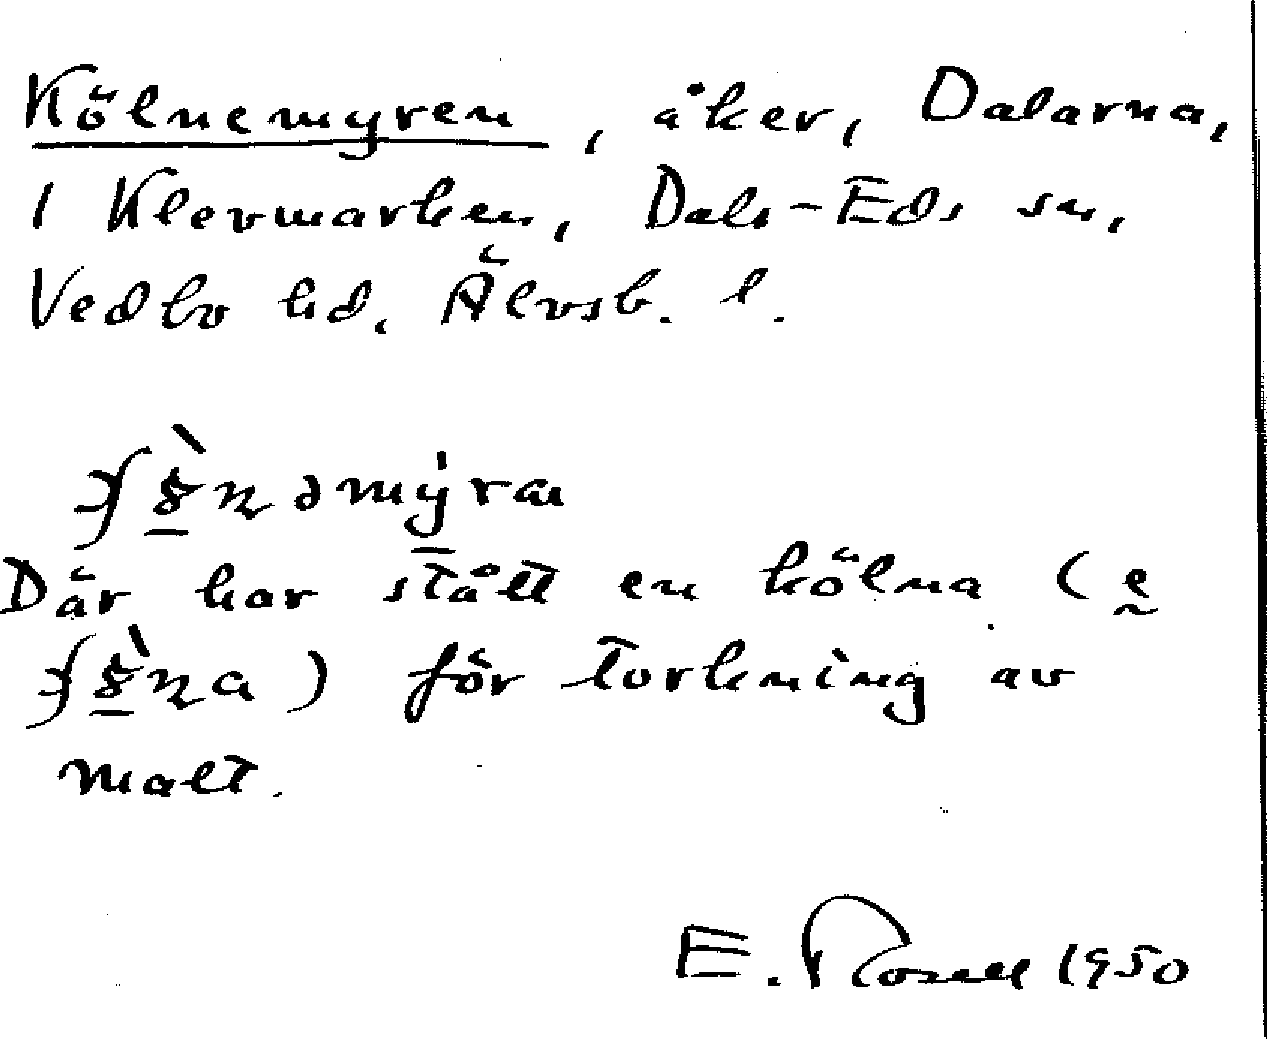 Kölnemyren, åker, Dalarna,
1 Klevmarken, Dals-Eds sn,
Vedbo hd. Älvsb. l.
Där har stått en kölna (e
) för torkning av
malt.
E. Rosell 1950